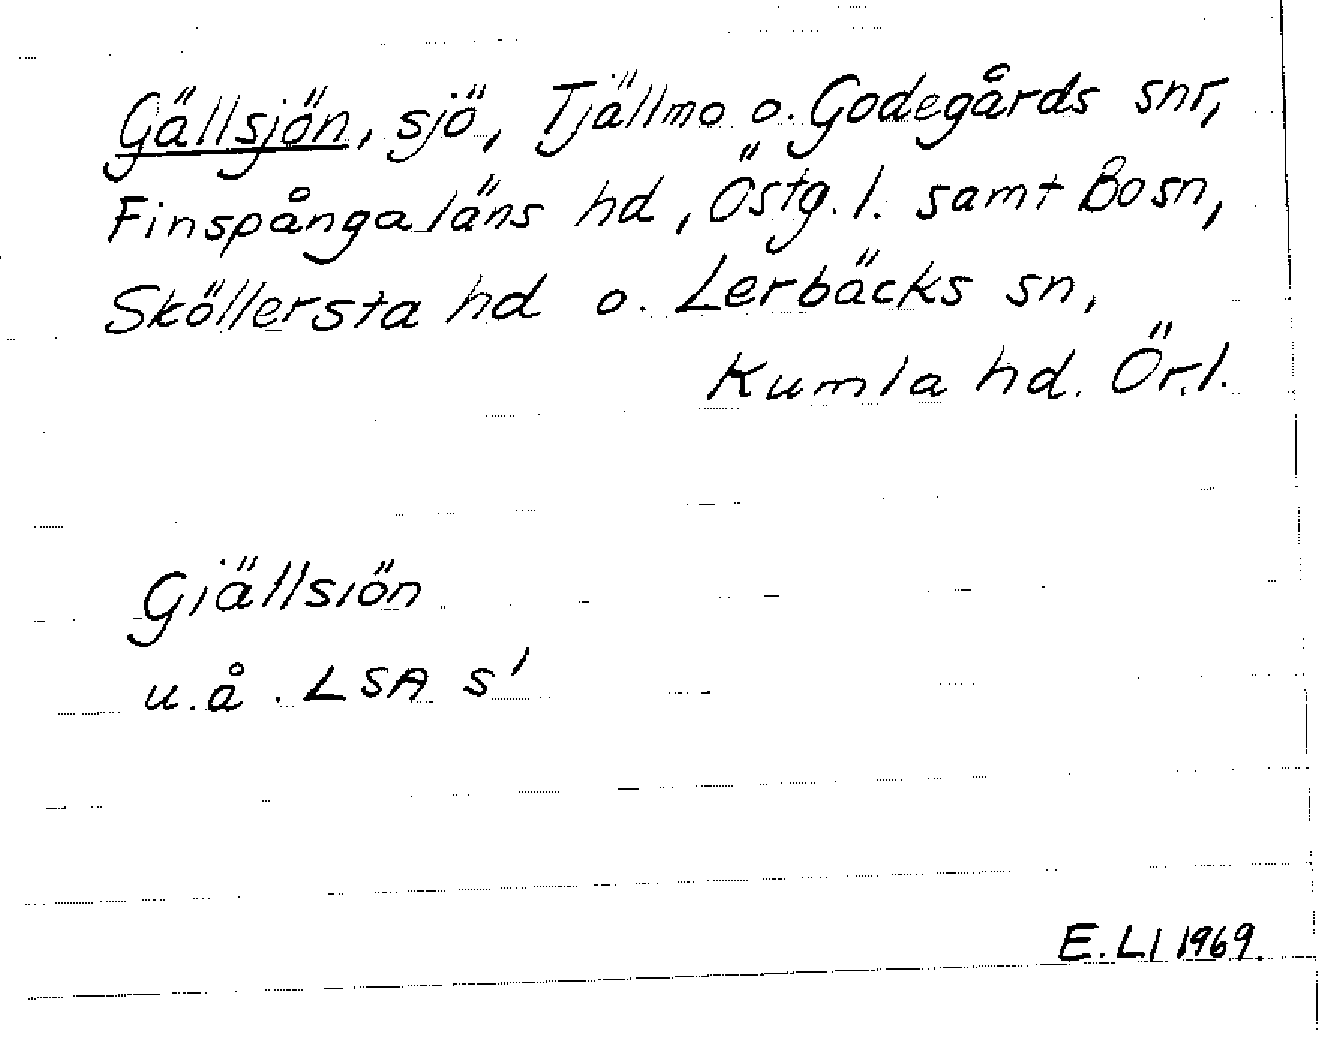 Gällsjön, sjö, Tjällmo o. Godegårds snr,
Finspånga läns hd, Östg. l. samt Bo sn,
Sköllersta hd o. Lerbäcks sn,
Kumla hd. Ör. l.
Giällsiön
u.å. LSA s'
E. LI 1969.